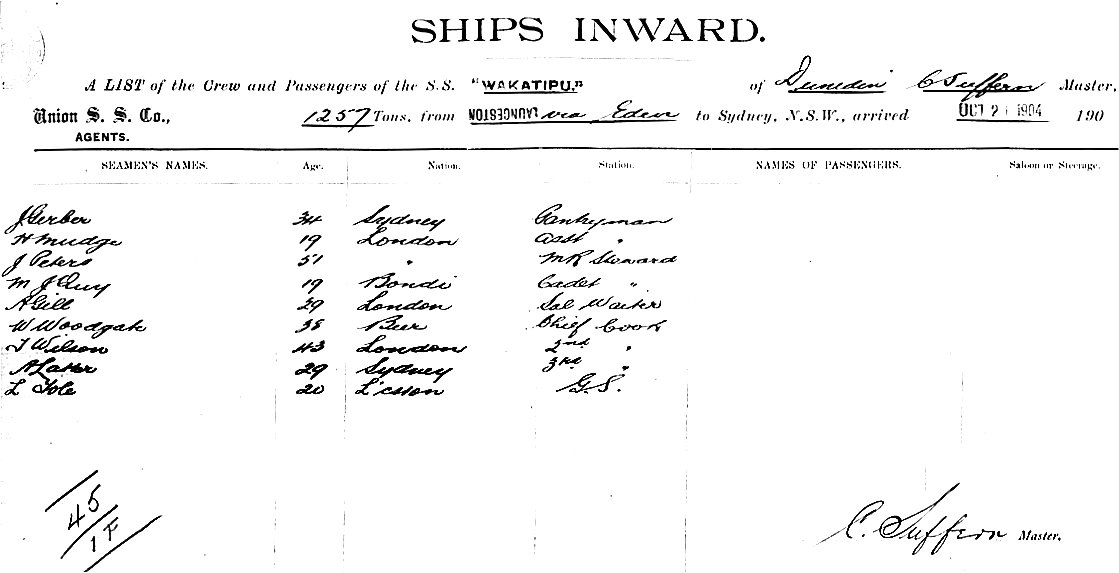 SHIPS INWARD.
A LIST of the Crew and Passengers of the S.S. "WAKATIPU." of Dunedin C Suffern Master,
Union S. S. Co., 1257 Tons, from LAUNCESTON via Eden to Sydney, N.S.W., arrived OCT 21 1904 190
AGENTS.
SEAMEN'S NAMES. Age. Nation. Station. NAMES OF PASSENGERS. Saloon or Steerage.
J Gerber 34 Sydney Pantryman
H Mudge 19 London Asst "
J Peters 51 " Steward
M J Guy 19 Bondi Cadet "
A Gill 29 London Sal Waiter
W Woodgate 38 Beer Chief Cook
T Wilson 43 London 2nd "
A Later 29 Sydney 3rd "
L Tole 20 L'cston G.S.
45
1 F
C. Suffern Master.